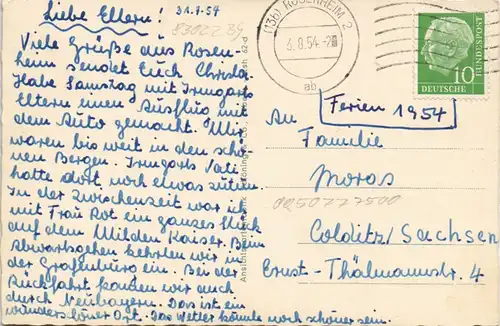 Liebe Eltern!
31.7.54
Viele Grüße aus Rosen-
heim sendet Euch Christa.
Habe Samstag mit Irmgarts
Eltern einen Ausflug mit
dem Auto gemacht. Wir
waren bis weit in den schö-
nen Bergen. Irmgarts Vati
hatte dort noch etwas zu tun.
In der Zwischenzeit war ich
mit Frau Rot ein ganzes Stück
auf dem Wilden Kaiser. Beim
Abwärtsgehen kehrten wir in
der Grafenburg ein. Bei der
Rückfahrt kamen wir auch
durch Neubayern. Das ist ein
wunderschöner Ort. Das Wetter könnte noch schöner sein.
(13b) ROSENHEIM 2
3.8.54
ab
10
DEUTSCHE
BUNDESPOST
Ferien 1954
An
Familie
Moras
0050227500
Colditz/Sachsen
Ernst-Thälmannstr. 4